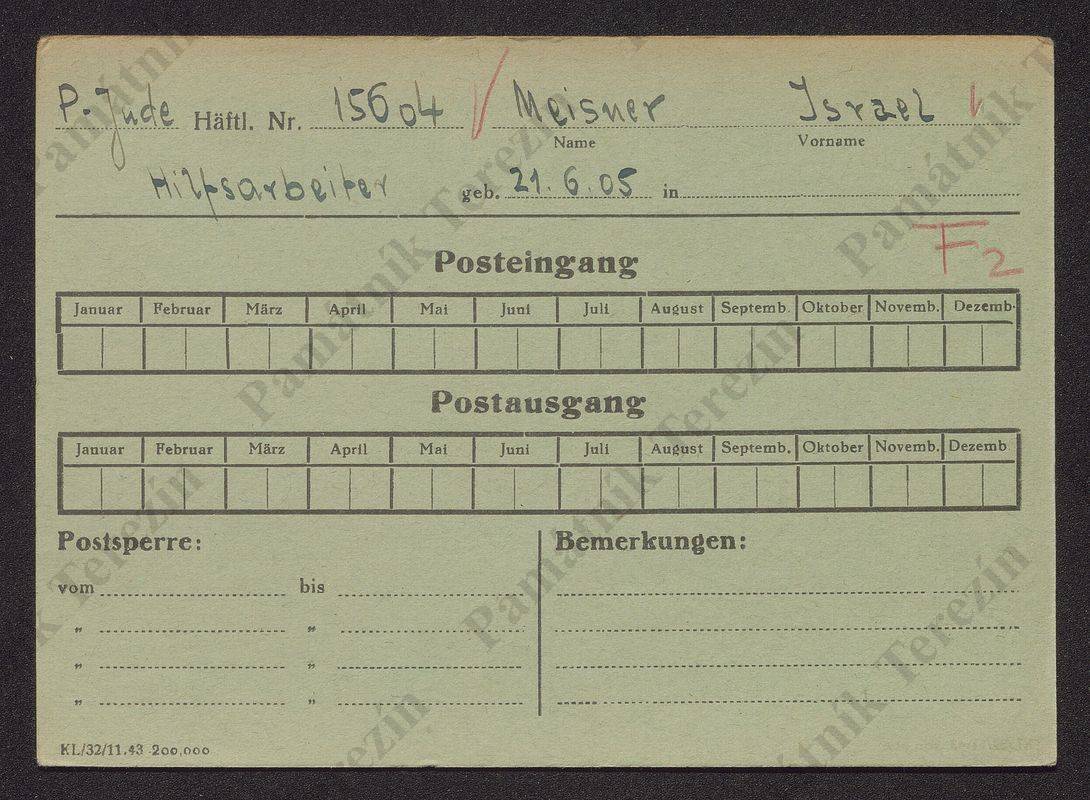 P. Jude Häftl. Nr. 15604 Meisner Israel
Name Vorname
Hilfsarbeiter geb. 21.6.05 in
F2
Posteingang
Januar Februar März April Mai Juni Juli August Septemb. Oktober Novemb. Dezemb.
Postausgang
Januar Februar März April Mai Juni Juli August Septemb. Oktober Novemb. Dezemb
Postsperre: Bemerkungen:
vom bis
" "
" "
" "
KL/32/11.43 200,000
Památník Terezín